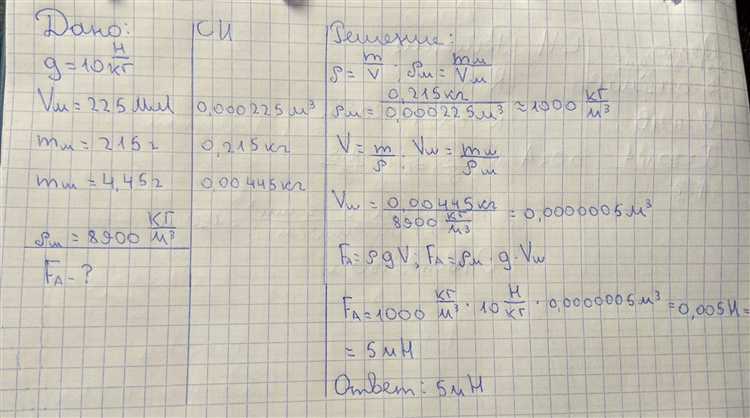 Дано:
g=10 Н/кг
Vм = 225 мл
mм = 215 г
mш = 4,45 г
ρм = 8900 кг/м³
FА - ?
СИ
0,000225 м³
0,215 кг
0,00445 кг
Решение:
ρ = m/V ; ρм = mм/Vм
ρм = 0,215 кг/0,000225 м³ ≈ 1000 кг/м³
V = m/ρ ; Vш = mш/ρм
Vш = 0,00445 кг/8900 кг/м³ = 0,0000005 м³
FА = ρgV ; FА = ρм · g · Vш
FА = 1000 кг/м³ · 10 Н/кг · 0,0000005 м³ = 0,005 Н =
= 5 мН
Ответ: 5 мН